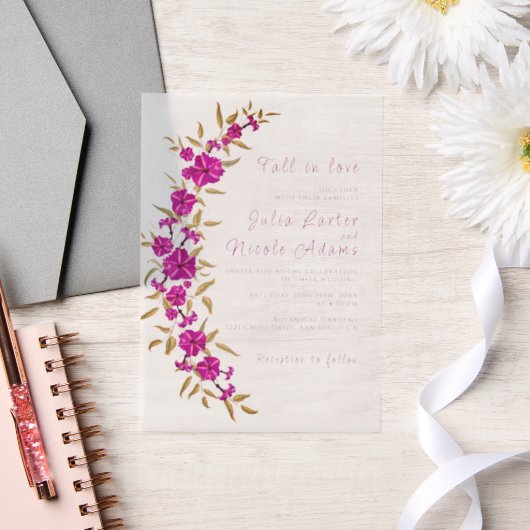 Fall in love
Together
with their families
Julia Carter
and
Nicole Adams
invite you at the celebration
of their wedding
Saturday June 14th, 20XX
at 4:30 PM
Botanical Gardens
1221 Cross Drive, San Diego CA
Reception to follow